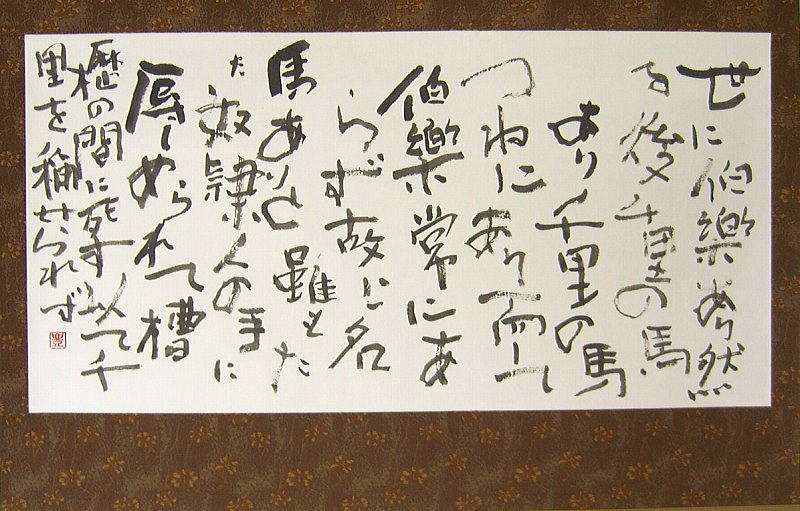 世に伯樂あり然
る後千里の馬
あり千里の馬
つねにあり而して
伯樂常にあ
らず故に名
馬ありと雖もた
た奴隷人の手に
辱しめられて槽
櫪の間に死す以て千
里を稱せられず